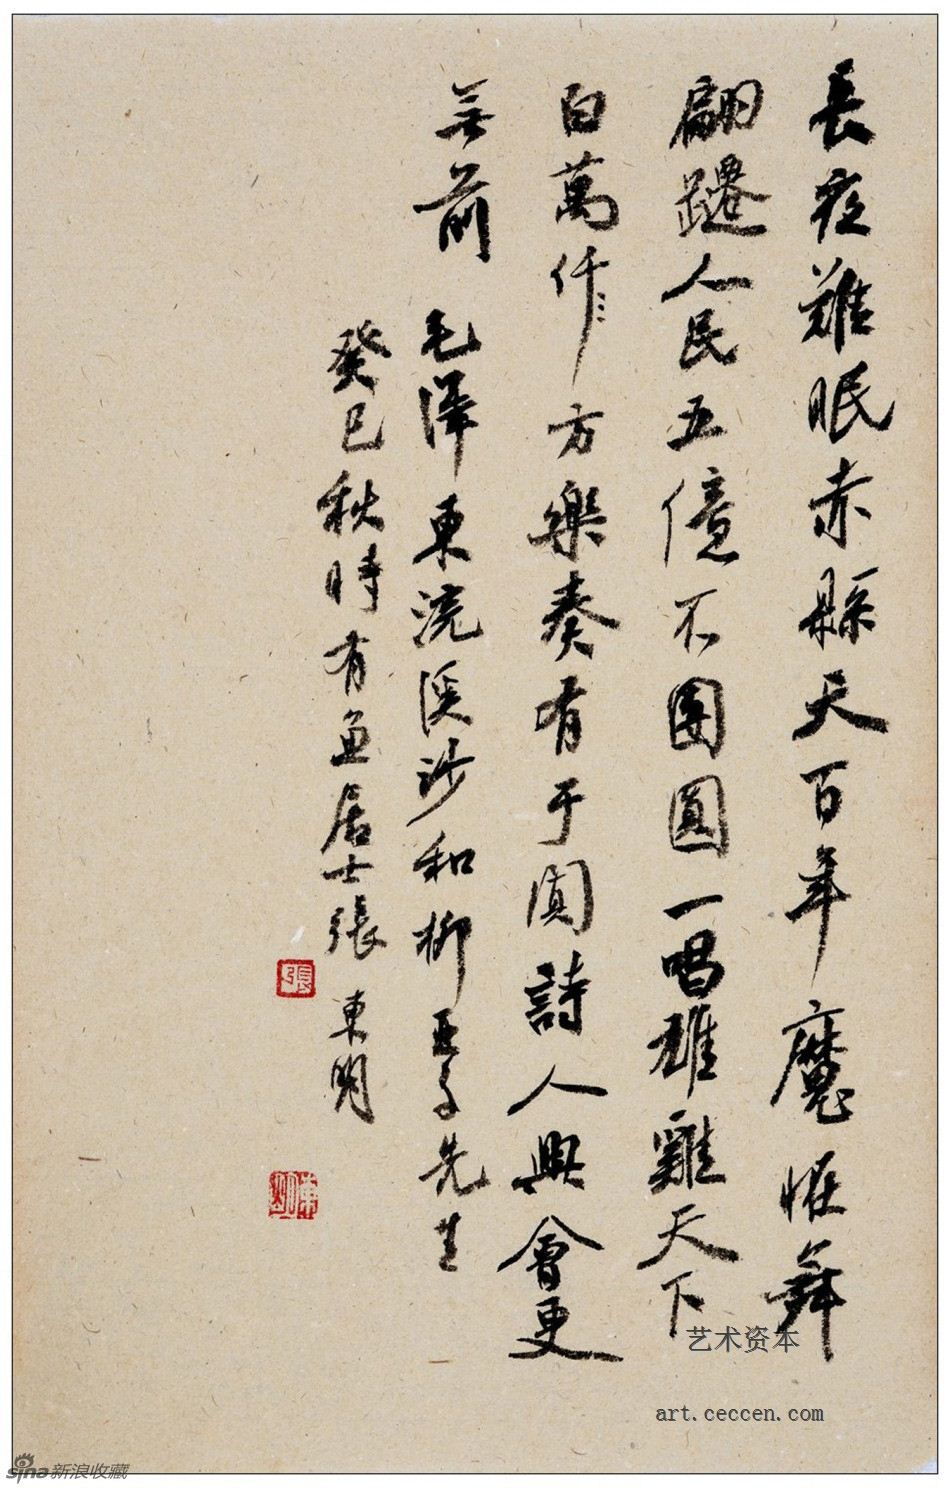 長夜難眠赤縣天百年魔怪舞
翩躚人民五億不團圓一唱雄雞天下
白萬仟方樂奏有于闐詩人興會更
無前
毛澤東浣溪沙和柳亞子先生
癸巳秋時有魚居士張東明
張
東明
艺术资本
art.ceccen.com
sina新浪收藏